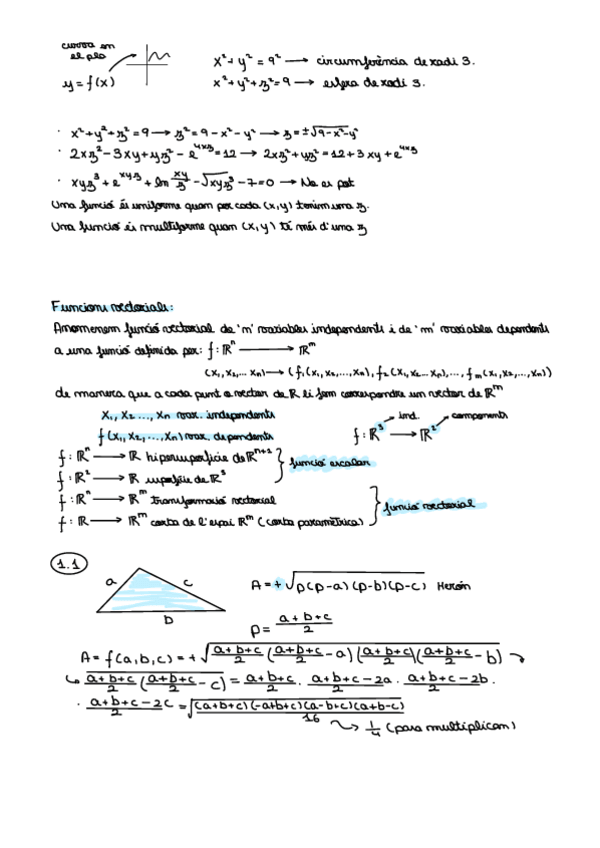 corba en
el pla
y = f(x)
x² + y² = 9² → circumferència de radi 3.
x² + y² + z² = 9 → esfera de radi 3.
· x² + y² + z² = 9 → z² = 9 - x² - y² → z = ±√9-x²-y²
· 2xz² - 3xy + yz² - e^4xz = 12 → 2xz² + yz² = 12 + 3xy + e^4xz
· xyz³ + e^xyz + ln xy/z - √xyz³ - 7 = 0 → No es pot
Una funció és uniforme quan per cada (x,y) tenim una z.
Una funció és multiforme quan (x,y) té més d'una z
Funcions vectorials:
Anomenem funció vectorial de 'n' variables independents i de 'm' variables dependents
a una funció definida per: f: ℝⁿ → ℝᵐ
(x₁, x₂, ... xₙ) → (f₁(x₁, x₂, ..., xₙ), f₂(x₁, x₂ ... xₙ), ..., fₘ(x₁, x₂, ..., xₙ))
de manera que a cada punt o vector de ℝ li fem correspondre un vector de ℝᵐ
x₁, x₂ ..., xₙ var. independents
f(x₁, x₂, ..., xₙ) var. dependents
ind. components
f: ℝ³ → ℝ²
f: ℝⁿ → ℝ hipersuperfície de ℝⁿ⁺¹
f: ℝ² → ℝ superfície de ℝ³
funció escalar
f: ℝⁿ → ℝᵐ transformació vectorial
f: ℝ → ℝᵐ corba de l'espai ℝᵐ (corba paramètrica)
funció vectorial
1.1
a c
b
A = + √p(p-a)(p-b)(p-c) Herón
p = a+b+c/2
A = f(a,b,c) = + √a+b+c/2 (a+b+c/2 - a)(a+b+c/2)(a+b+c/2 - b)
a+b+c/2 (a+b+c/2 - c) = a+b+c/2 · a+b+c-2a/2 · a+b+c-2b/2 ·
· a+b+c-2c/2 = √(a+b+c)(-a+b+c)(a-b+c)(a+b-c)/16
1/4 (para multiplican)